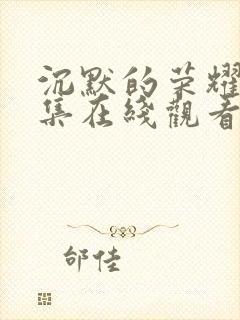 沉默的荣耀
集在綫觀看
邰佳